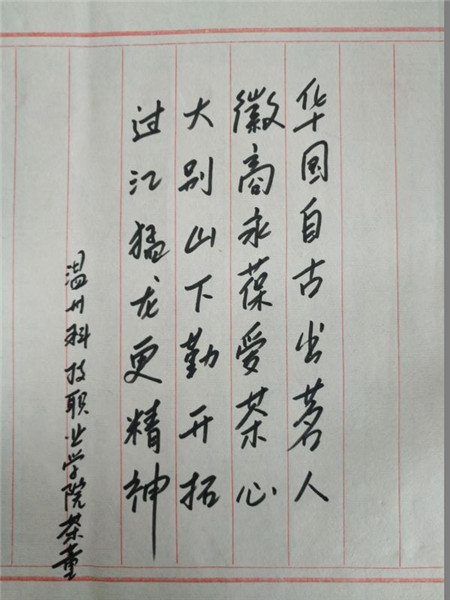 华国自古出茗人
徽商永葆爱茶心
大别山下勤开拓
过江猛龙更精神
温州科技职业学院茶童